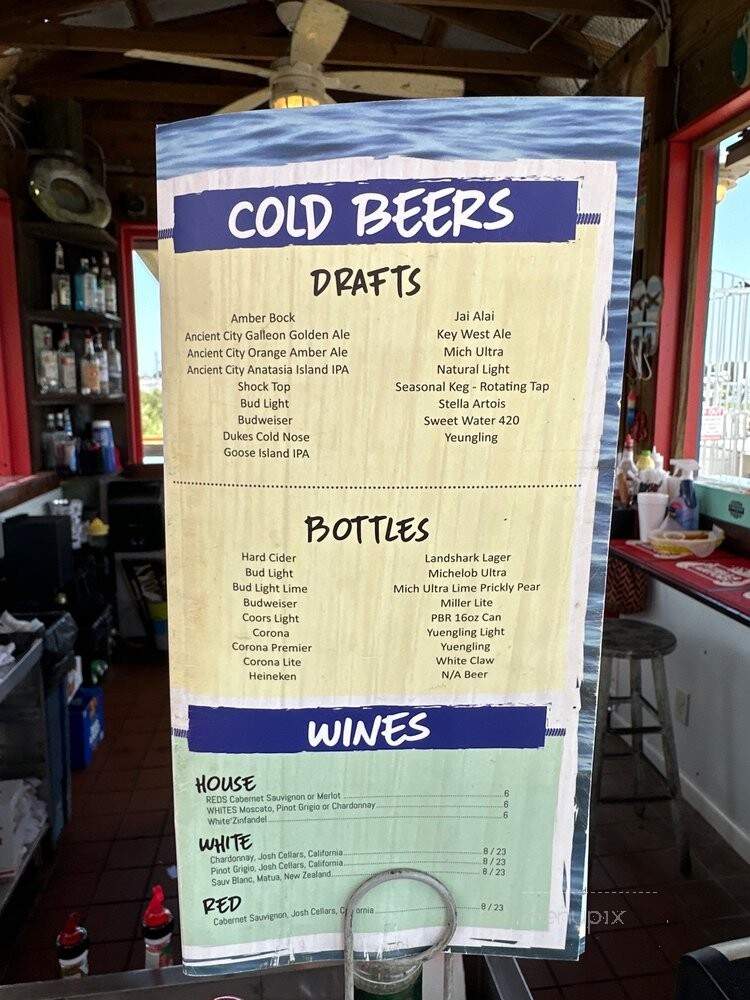 COLD BEERS
DRAFTS
Amber Bock
Ancient City Galleon Golden Ale
Ancient City Orange Amber Ale
Ancient City Anatasia Island IPA
Shock Top
Bud Light
Budweiser
Dukes Cold Nose
Goose Island IPA
Jai Alai
Key West Ale
Mich Ultra
Natural Light
Seasonal Keg - Rotating Tap
Stella Artois
Sweet Water 420
Yeungling
BOTTLES
Hard Cider
Bud Light
Bud Light Lime
Budweiser
Coors Light
Corona
Corona Premier
Corona Lite
Heineken
Landshark Lager
Michelob Ultra
Mich Ultra Lime Prickly Pear
Miller Lite
PBR 16oz Can
Yuengling Light
Yuengling
White Claw
N/A Beer
WINES
HOUSE
REDS Cabernet Sauvignon or Merlot 6
WHITES Moscato, Pinot Grigio or Chardonnay 6
White Zinfandel 6
WHITE
Chardonnay, Josh Cellars, California 8 / 23
Pinot Grigio, Josh Cellars, California 8 / 23
Sauv Blanc, Matua, New Zealand 8 / 23
RED
Cabernet Sauvignon, Josh Cellars, 8 / 23